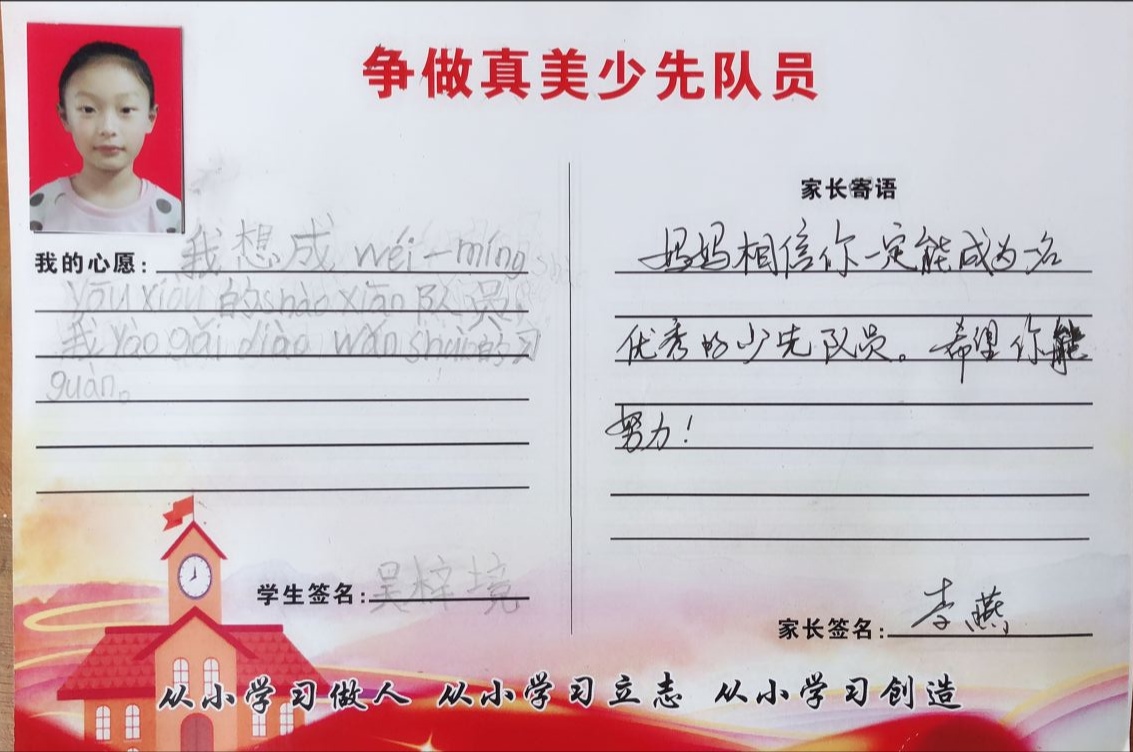 争做真美少先队员
我的心愿：我想成wéi一míng
yōu xiòu的shào xiān队员，
我yào gǎi diào wán shuǎ的习
guàn。
学生签名：吴梓境
家长寄语
妈妈相信你一定能成为一名
优秀的少先队员。希望你能
努力！
家长签名：李燕
从小学习做人 从小学习立志 从小学习创造